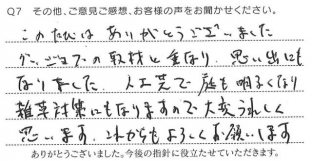 Q7 その他、ご意見ご感想、お客様の声をお聞かせください。
このたびは ありがとうございました
の取材と重なり、思い出にも
なりました。人工芝で庭も明るくなり
雑草対策にもなりますので大変うれしく
思います。これからもよろしくお願いします
ありがとうございました。今後の指針に役立たせていただきます。